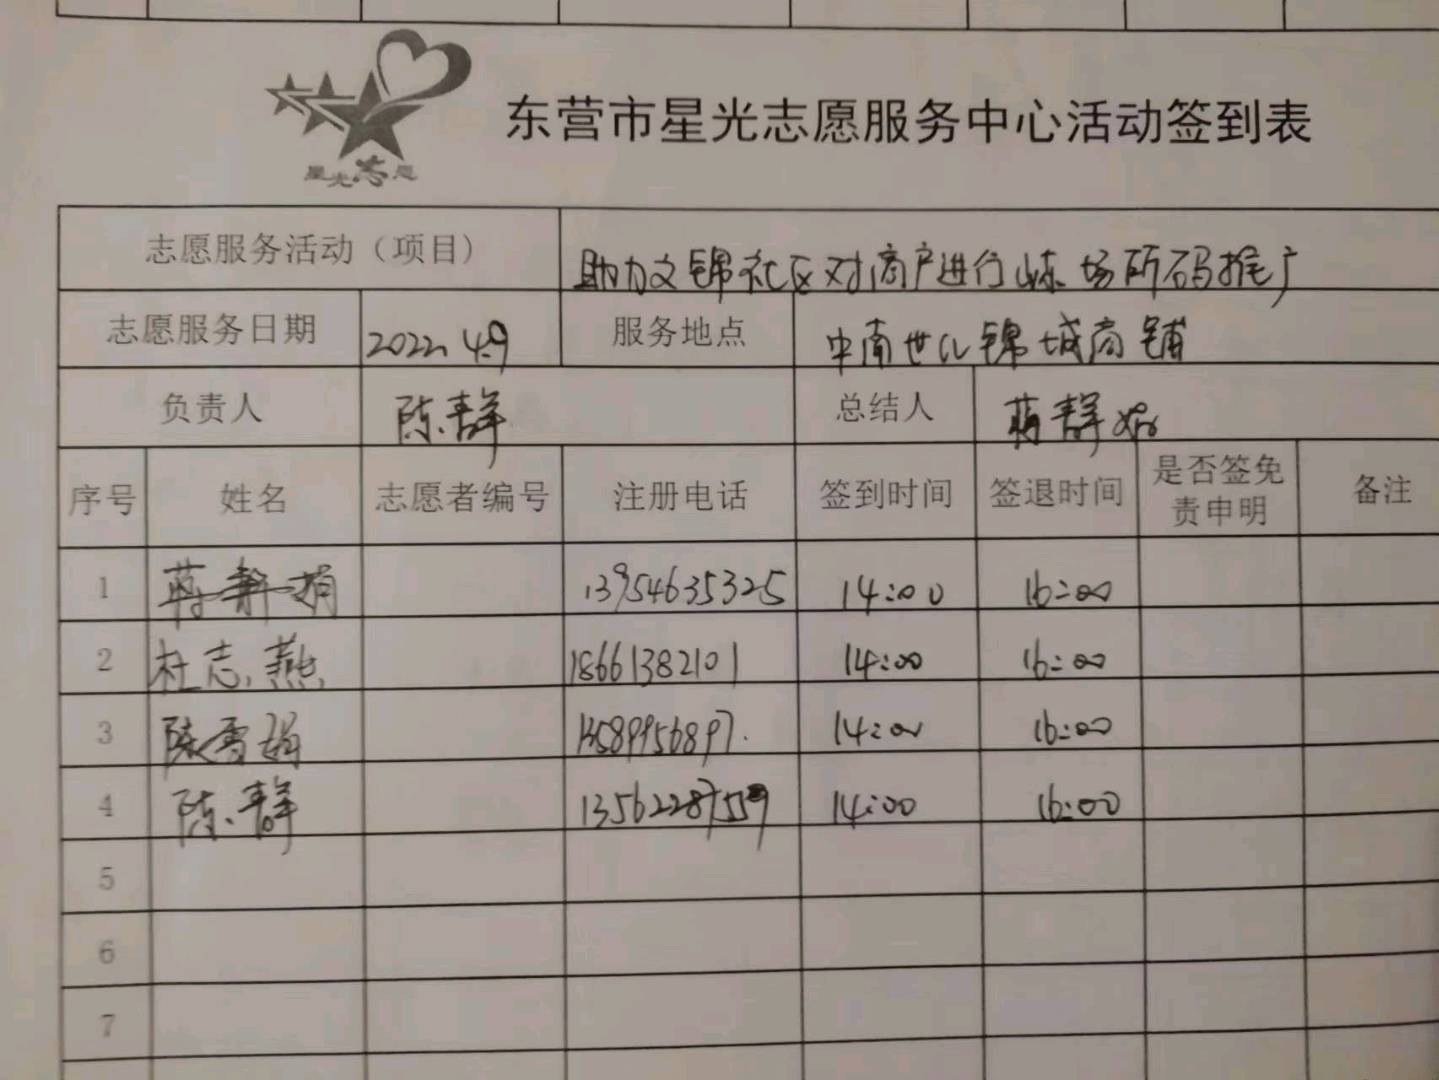 星光志愿
东营市星光志愿服务中心活动签到表
志愿服务活动（项目） 助力文锦社区对商户进行山东场所码推广
志愿服务日期 2022.4.9 服务地点 中南世纪锦城商铺
负责人 陈群 总结人 蒋群娟
序号 姓名 志愿者编号 注册电话 签到时间 签退时间 是否签免责申明 备注
1 13954635325 14:00 16:00
2 杜志燕 18661382101 14:00 16:00
3 陈雪娟 13589956897 14:00 16:00
4 陈群 14:00 16:00
5
6
7